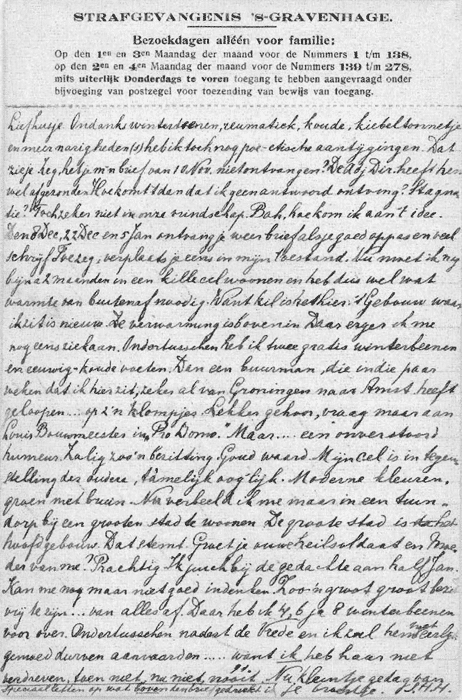 STRAFGEVANGENIS 'S-GRAVENHAGE.
Bezoekdagen alléén voor familie:
Op den 1en en 3en Maandag der maand voor de Nummers 1 t/m 138,
op den 2en en 4en Maandag der maand voor de Nummers 139 t/m 278,
mits uiterlijk Donderdags te voren toegang te hebben aangevraagd onder
bijvoeging van postzegel voor toezending van bewijs van toegang.
Ondanks wintertoonen, reumatiek, koude, kiebeltonnetje
en meer narigheden(s) heb ik toch nog poëtische aantijgingen. Dat
zie je. Zeg, heb je m'n brief van 10 Nov. niet ontvangen? De Adj. Dir. heeft hem
wel afgezonden. Hoe komt 't dan dat ik geen antwoord ontving? Stagna-
tie? Toch zeker niet in onze vriendschap. Bah, hoe kom ik aan 't idee.
Den 8 Dec, 22 Dec en 5 Jan ontvang je weer brief als je goed oppast en veel
schrijft. Toe zeg, verplaats je eens in mijn toestand. Nu moet ik nog
bijna 2 maanden in een kille cel woonen en heb dus wel wat
warmte van buitenaf noodig. Want kil is het hier. 't Gebouw waar
ik zit is nieuw. De verwarming is boven in. Daar erger ik me
nog eens ziek aan. Ondertusschen heb ik twee gratis winterbeenen
en eeuwig-koude voeten. Dan een buurman, die in die paar
weken dat ik hier zit, zeker al van Groningen naar Amst. heeft
geloopen... op z'n klompjes. Lekker gehoor, vraag maar aan
Louis Bouwmeester in "Pro Domo." Maar.... een onverstoord
humeur. Zalig zoo'n bezitting. Goud waard. Mijn cel is in tegen-
stelling der oudere, tamelijk ooglijk. Moderne kleuren,
groen met bruin. Nu verbeeld ik me maar in een tuin-
dorp bij een grooten stad te woonen. De groote stad is
hoofdgebouw. Dat stemt. Groet je ouwe heilsoldaat en Moe-
der van me? Prachtig. Ik juich bij de gedachte aan half Jan.
Kan me nog maar niet goed indenken. Zoo'n groot groot bezit
vrij te zijn... van alles af. Daar heb ik 4, 6 ja 8 winterbeenen
voor over. Ondertusschen nadert de Vrede en ik zal hem met
gemoed durven aanvaarden..... want ik heb haar niet
verdreven, toen niet, nu niet, nooit. Nu kleintje gedag van
Speciaal letten op wat boven den brief gedrukt is. Je